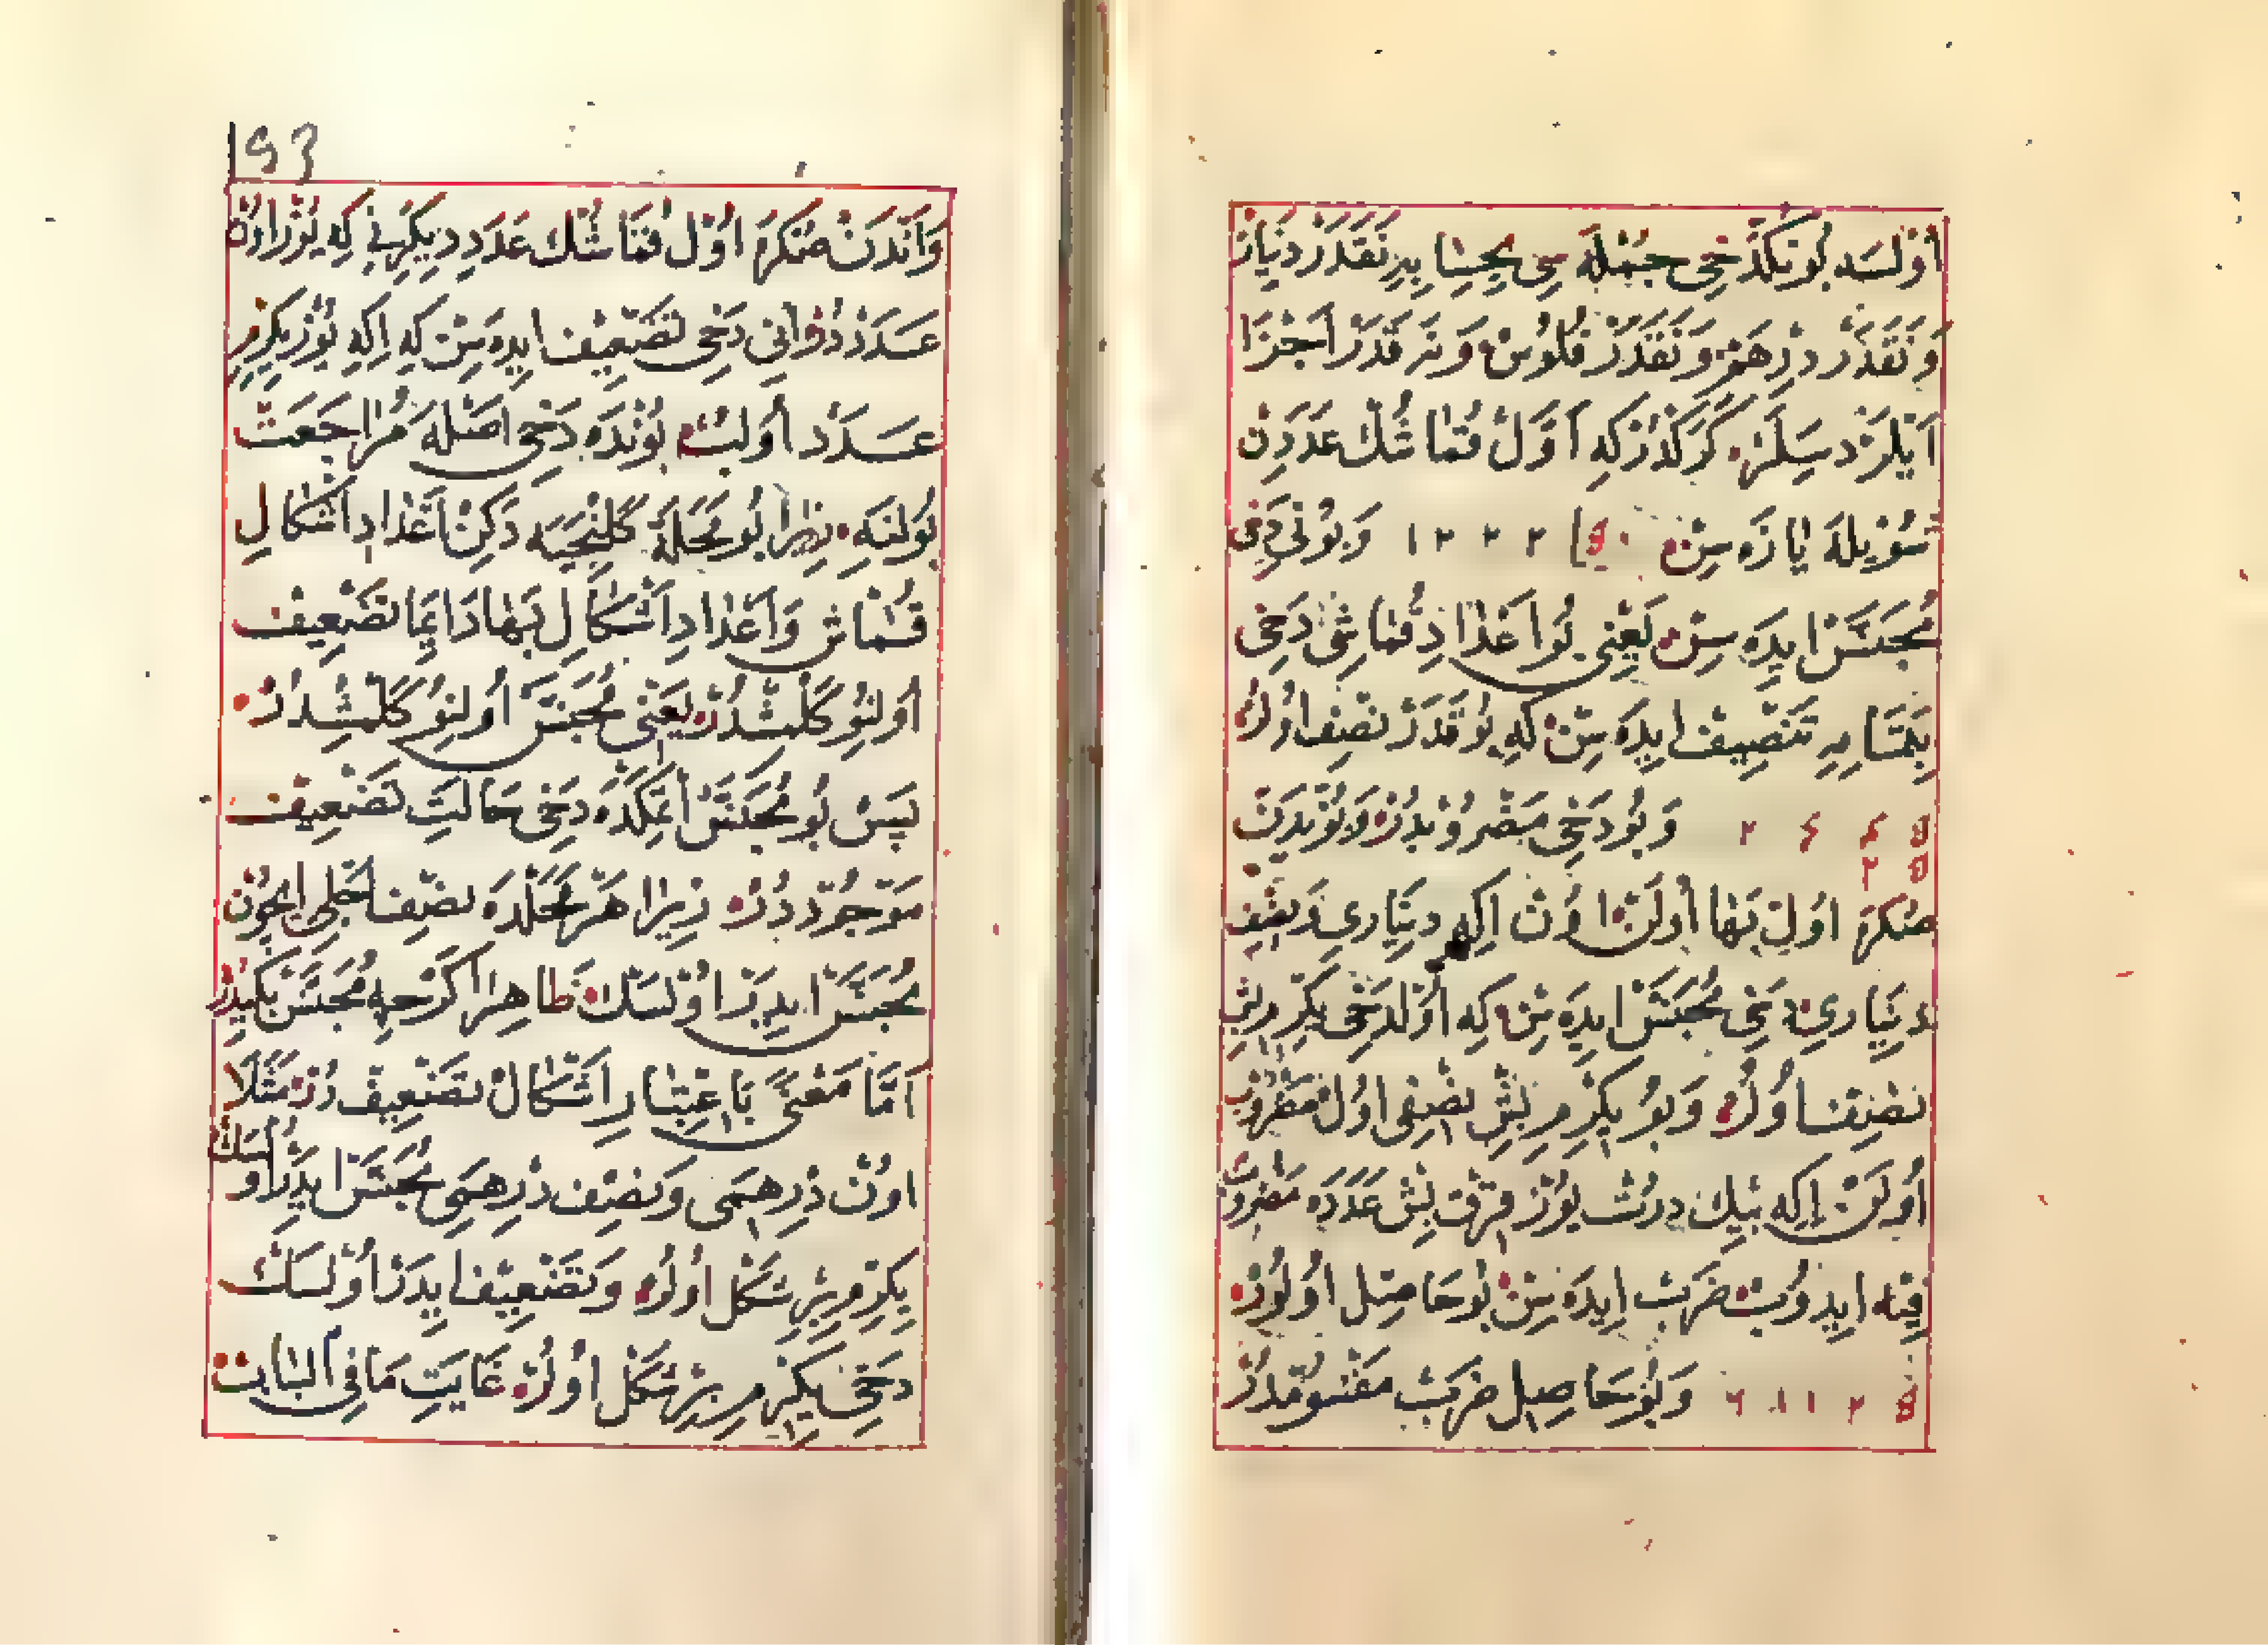 اولسه بونك دخی جمله سی بحسابه نقدر دینار
و نقدر درهم و نقدر فلوس و نه قدر اجزا
ایلر دیسلر کرکدر که اول قماشك عددن
یازه سن ١٢٢٢ و بونی دخی
مجنس ایده سن یعنی بو اعداد قماشی دخی
بتمامه تنصیف ایده سن که بو قدر نصف اولر
٥ ٤ ٤ ٢ و بو دخی مضروبدر و بوندن
صکره اول بها اولن اون اکی دیناری و نصف
دیناری دخی مجنس ایده سن که اول دخی یکرمی بش
نصف اولر و بو یکرمی بش نصفی اول مضروب
اولن اکی بیك درت یوز قرق بش عدده مضروب
فیه ایدوب ضرب ایده سن بو حاصل اولور
٦ ١ ١ ٢ ٥ و بو حاصل ضرب مقسومدر
و اندن صکره اول قماشك عدد دیکرنی که یوز اون
عدددر انی دخی تضعیف ایده سن که اکی یوز یکرمی
عدد اولب بونده دخی اصله مراجعت
بولنه نظرا بو محله کلنجیه دکن اعداد اشکال
قماش و اعداد اشکال بها دایما تضعیف
اولنو کلشدر یعنی مجنس اولنو کلشدر
پس بو مجنس اتمکده دخی حالت تضعیف
موجوددر زیرا هر محلده نصف اجلی ایچون
مجنس ایدر اولسك ظاهرا کرچه مجنس
اما معنی باعتبار اشکال تضعیفدر مثلا
اون درهمی و نصف درهمی مجنس ایدر اولسك
یکرمی بر شکل اولر و تضعیف ایدر اولسك
دخی یکرمی بر شکل اولر غایت ما فی الباب
193